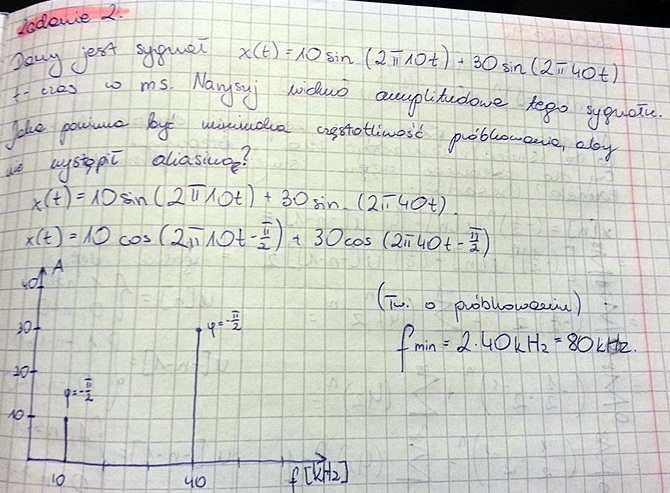 Zadanie 2.
Dany jest sygnał x(t) = 10 sin (2π10t) + 30 sin (2π40t)
t - czas w ms. Narysuj widmo amplitudowe tego sygnału.
Jaka powinna być minimalna częstotliwość próbkowania, aby
nie wystąpił aliasing?
x(t) = 10 sin (2π10t) + 30 sin (2π40t).
x(t) = 10 cos (2π10t - π/2) + 30 cos (2π40t - π/2)
A
40
30
20
10
φ = -π/2
φ = -π/2
10
40
f [kHz]
(Tw. o próbkowaniu)
fmin = 2·40kHz = 80kHz.